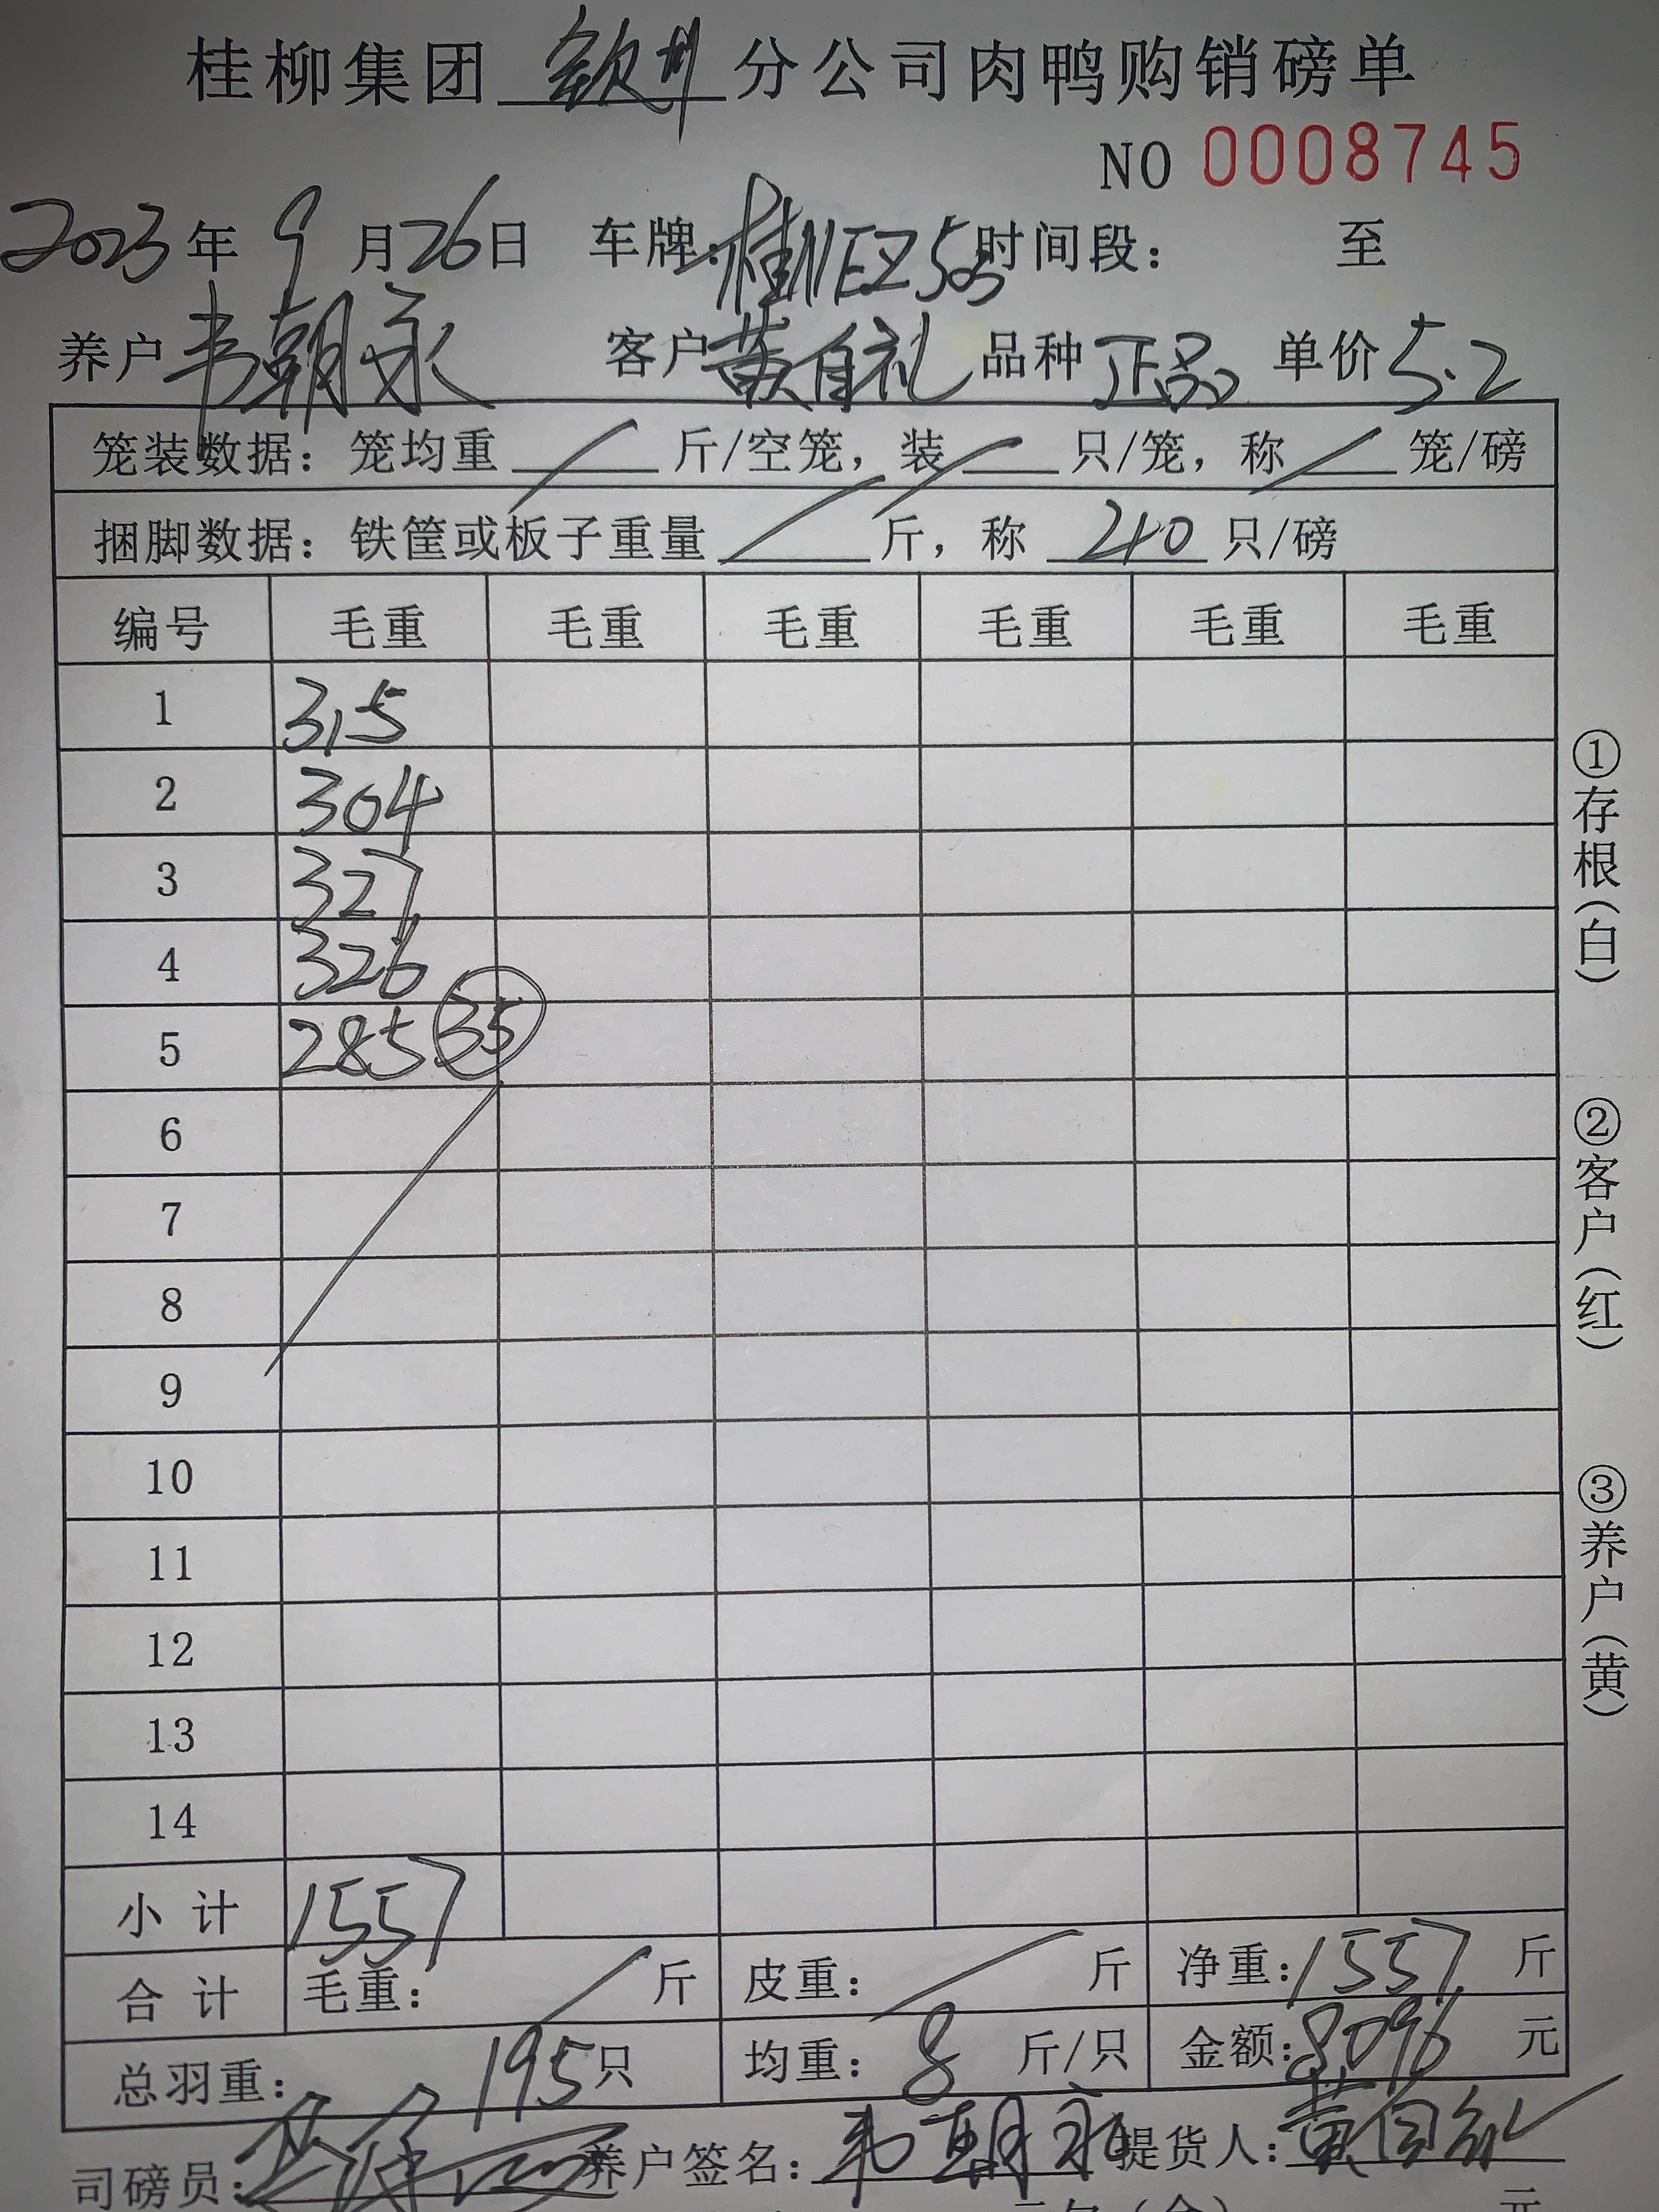 桂柳集团 钦州 分公司肉鸭购销磅单
NO 0008745
2023年 9月26日 车牌:桂NEZ505 时间段: 至
养户 韦朝永 客户 黄自礼 品种 正品 单价 5.2
笼装数据:笼均重 / 斤/空笼,装 / 只/笼,称 / 笼/磅
捆脚数据:铁筐或板子重量 / 斤,称 40 只/磅
编号 毛重 毛重 毛重 毛重 毛重 毛重
1 315
2 304
3 327
4 326
5 285 35
6
7
8
9
10
11
12
13
14
小计 1557
合计 毛重: / 斤 皮重: / 斤 净重:1557 斤
总羽重: 195只 均重: 8 斤/只 金额:8096 元
司磅员: 养户签名:韦朝永 提货人:黄自礼
①存根(白)
②客户(红)
③养户(黄)